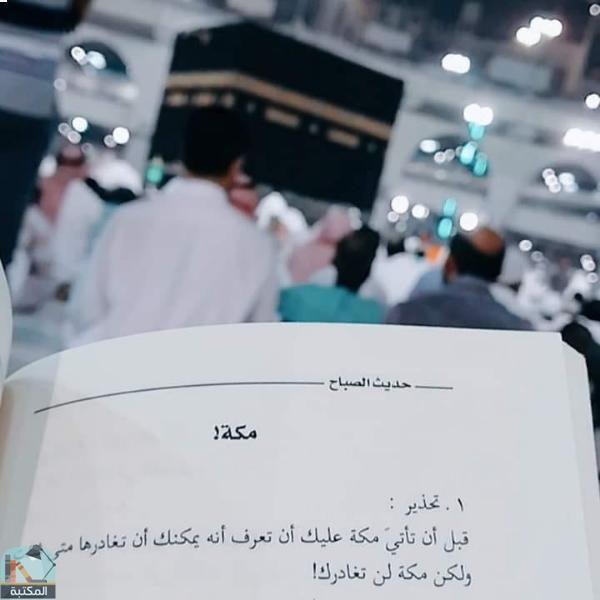 حديث الصباح
مكة!
١. تحذير :
قبل أن تأتيَ مكة عليك أن تعرف أنه يمكنك أن تغادرها متى
ولكن مكة لن تغادرك!
المكتبة